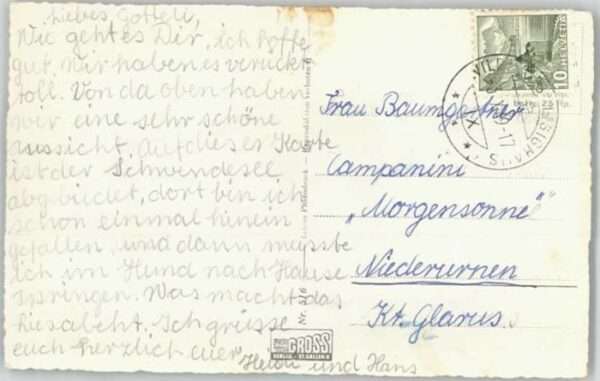 Liebes Gotteli,
Wie geht es Dir, ich hoffe
gut. Wir haben es verückt
toll. Von da oben haben
wir eine sehr schöne
aussicht. Auf dieser Karte
ist der Schwendesee
abgebildet, dort bin ich
schon einmal hinein
gefallen, und dann musste
ich im Hemd nach Hause
springen. Was macht das
Ich grüsse
euch herzlich euer,
Heidi und Hans
Frau Baumgartner
Campanini
„Morgensonne"
Niederurnen
Kt. Glarus
HELVETIA
10
17
Nr. 516
FOTO
GROSS
VERLAG - ST. GALLEN